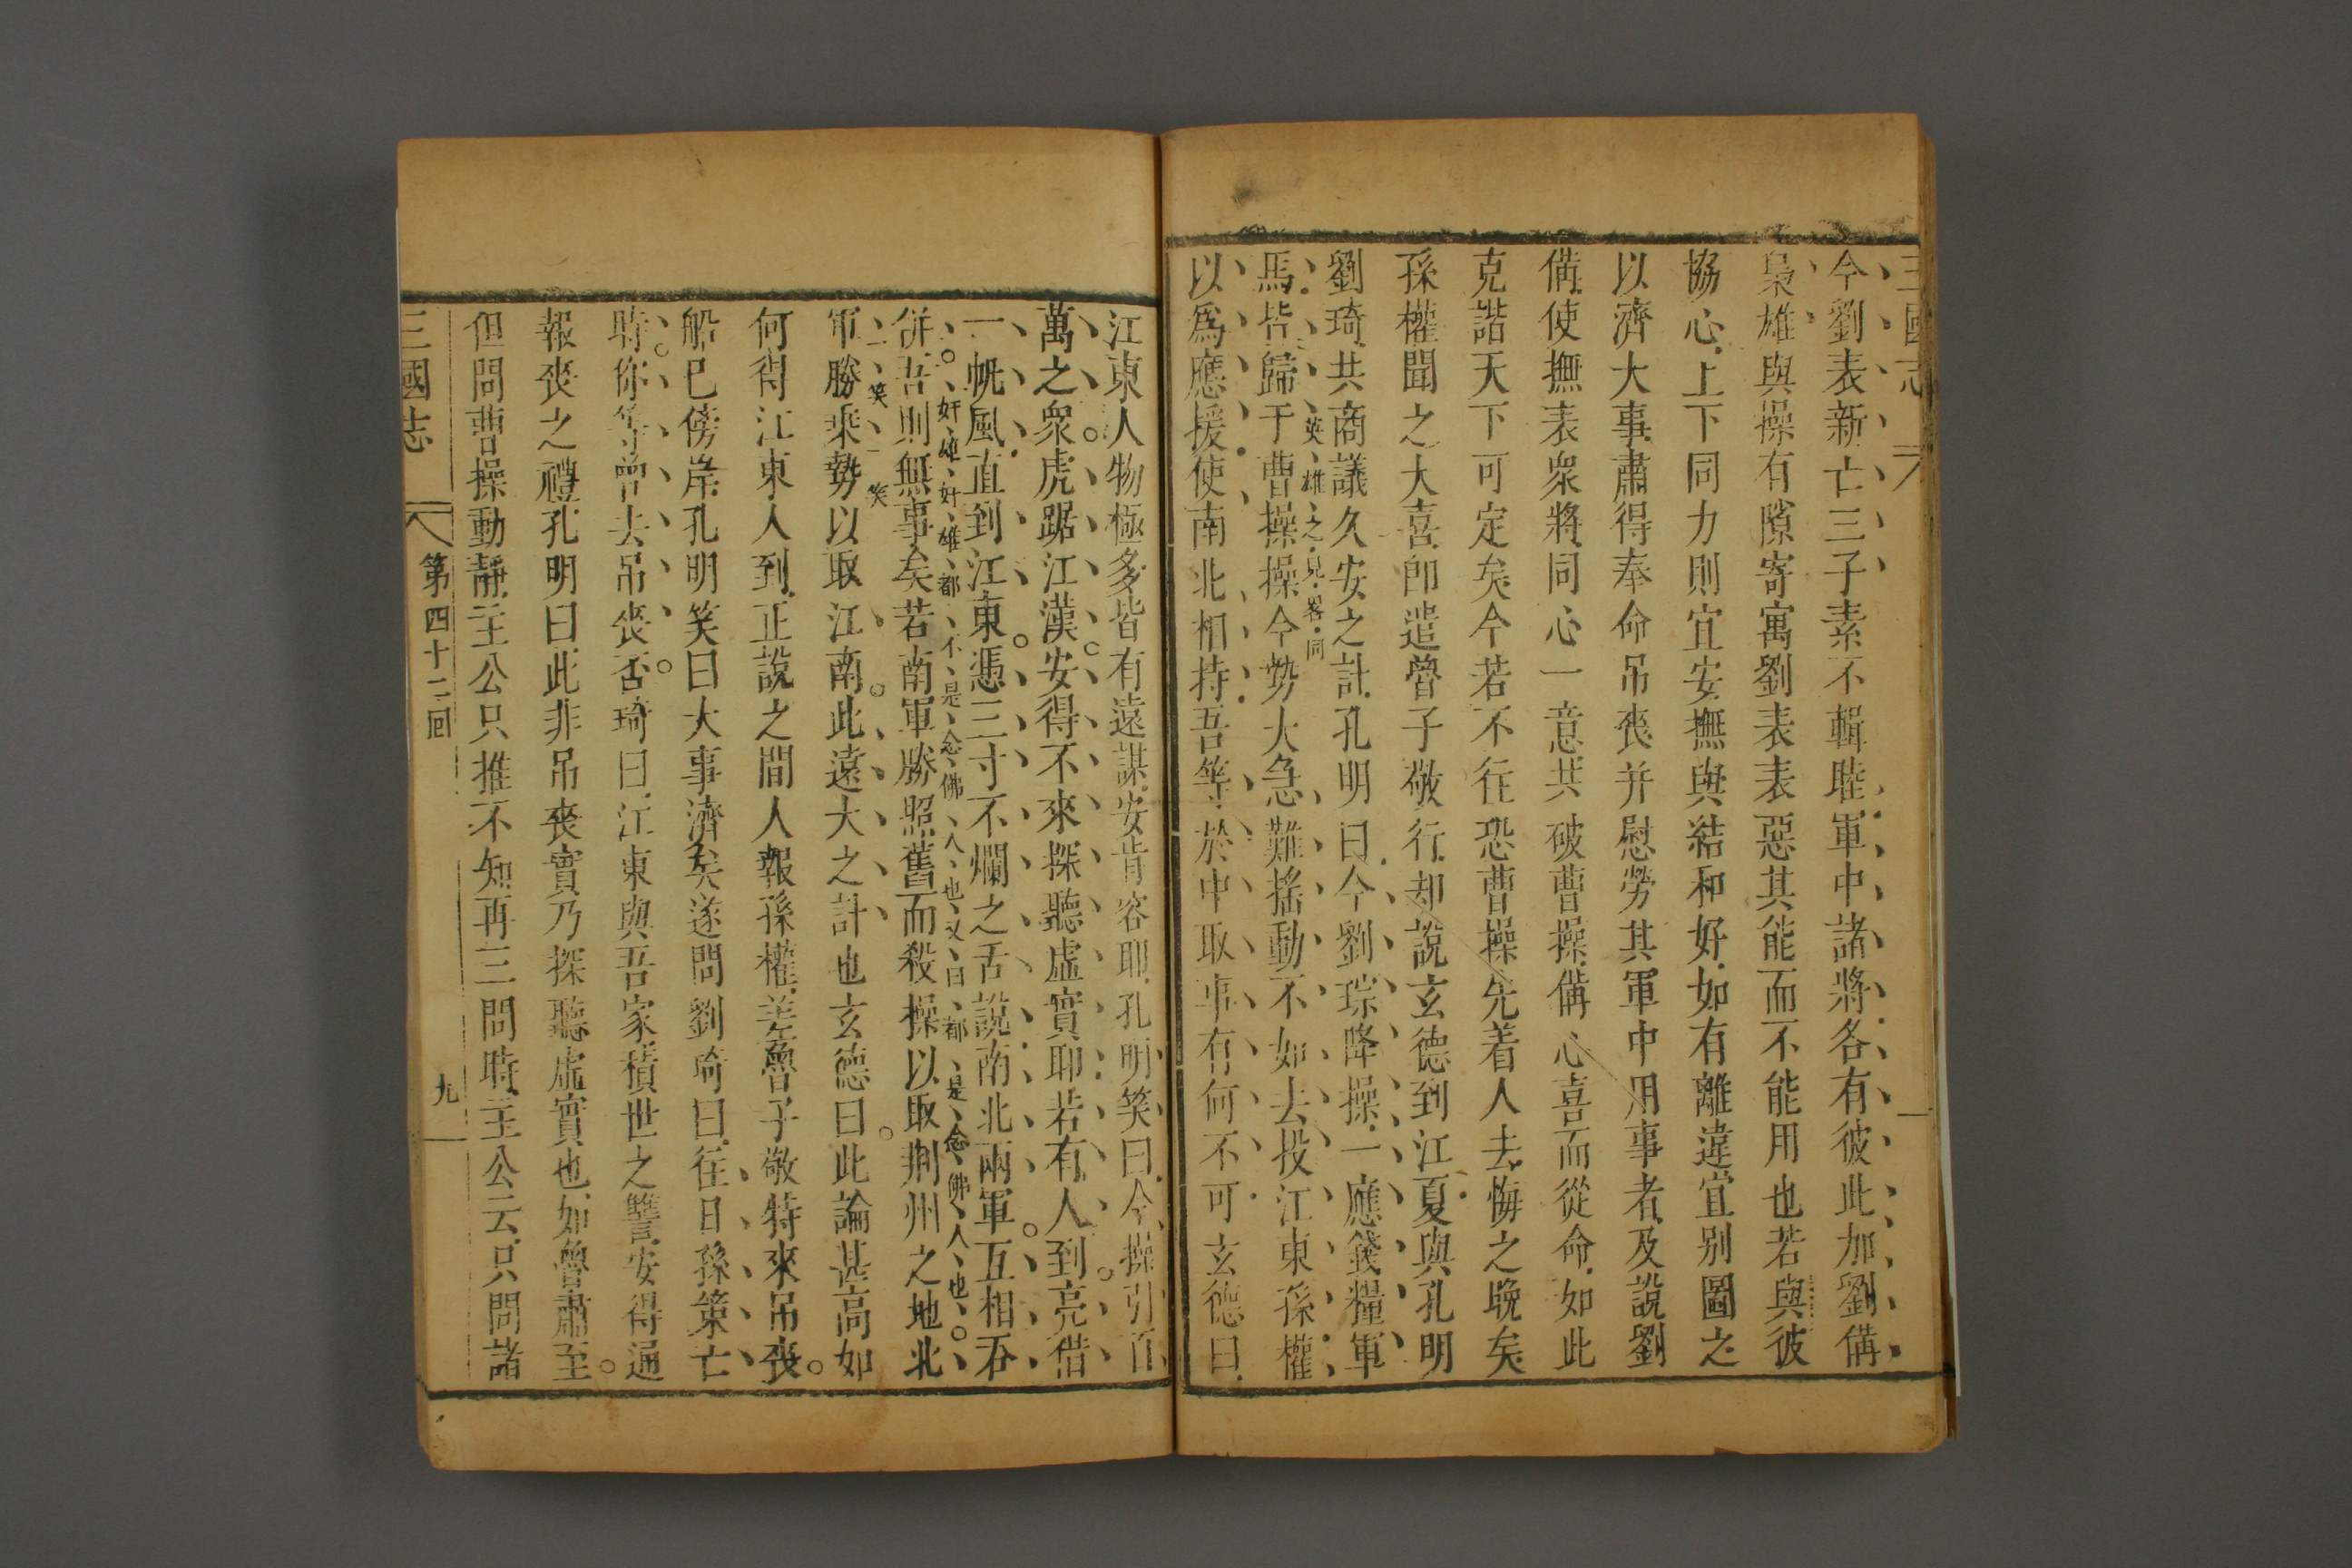 三國志
今劉表新亡三子素不輯睦軍中諸將各有彼此加劉備
梟雄與操有隙寄寓劉表表惡其能而不能用也若與彼
協心上下同力則宜安撫與結和好如有離違宜别圖之
以濟大事肅得奉命吊喪并慰勞其軍中用事者及說劉
備使撫表衆將同心一意共破曹操備心喜而從命如此
克諧天下可定矣今若不徃恐曹操先着人去悔之晚矣
孫權聞之大喜即遣魯子敬行却說玄德到江夏與孔明
劉琦共商議久安之計孔明曰今劉琮降操一應錢糧軍
英雄之見畧同
馬皆歸于曹操操今勢大急難摇動不如去投江東孫權
以爲應援使南北相持吾等於中取事有何不可玄德曰
江東人物極多皆有遠謀安肯容耶孔明笑曰今操引百
萬之衆虎踞江漢安得不來探聽虛實耶若有人到亮借
一帆風直到江東憑三寸不爛之舌說南北兩軍互相吞
奸雄奸雄都不是念佛人也又曰都是念佛人也
併吾則無事矣若南軍勝照舊而殺操以取荆州之地北
一笑一笑
軍勝乘勢以取江南此遠大之計也玄德曰此論甚高如
何得江東人到正說之間人報孫權差魯子敬特來吊喪
船已傍岸孔明笑曰大事濟矣遂問劉琦曰徃日孫策亡
時你等曾去吊喪否琦曰江東與吾家積世之讐安得通
報喪之禮孔明曰此非吊喪實乃探聽虛實也如魯肅至
但問曹操動静主公只推不知再三問時主公云只問諸
三國志
第四十二回
九